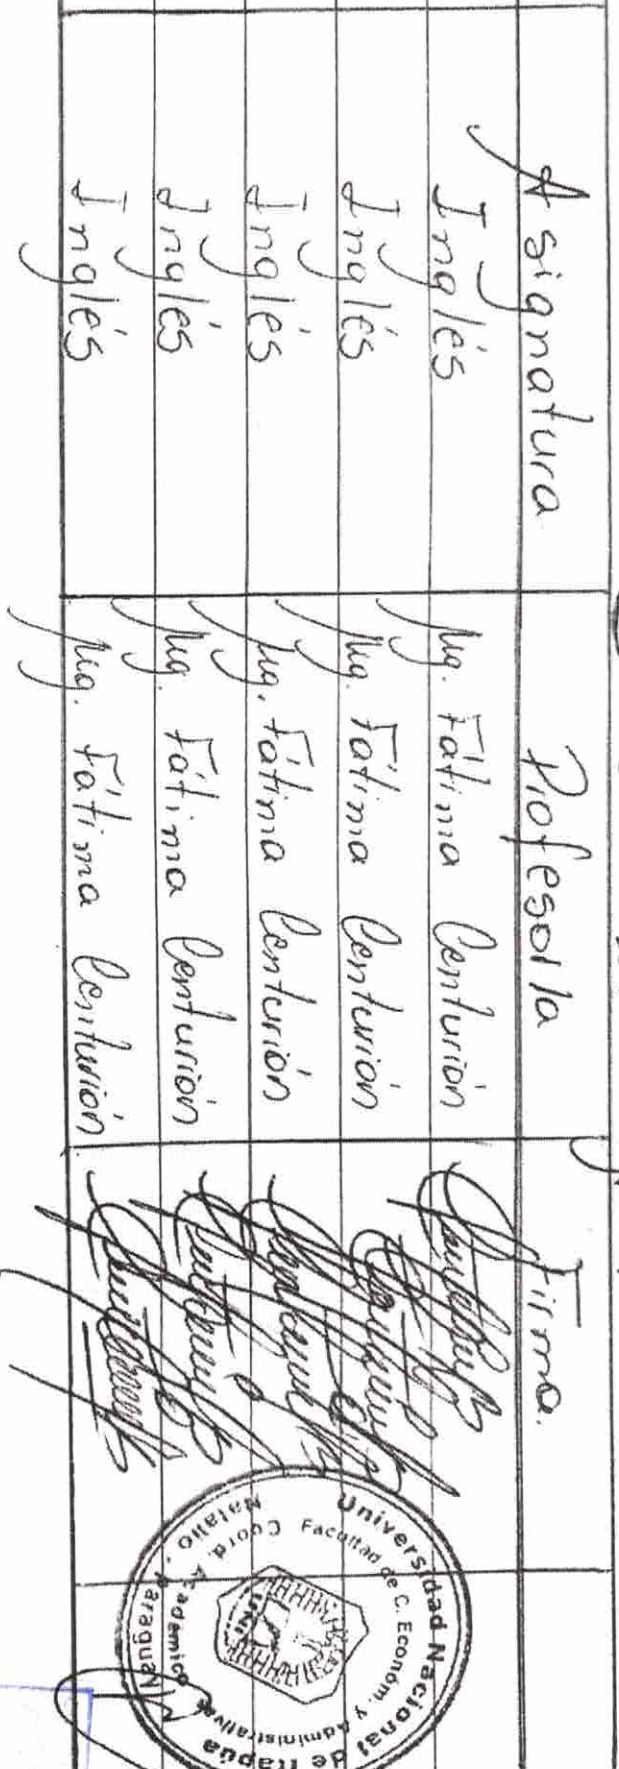 Asignatura Profesor/a Firma.
Inglés Mg. Fátima Centurión
Inglés Mg. Fátima Centurión
Inglés Mg. Fátima Centurión
Inglés Mg. Fátima Centurión
Inglés Mg. Fátima Centurión
Universidad Nacional de Itapúa
Facultad de C. Económ. y Administrativas
Coord. Académica
Natalio - Paraguay
UNI